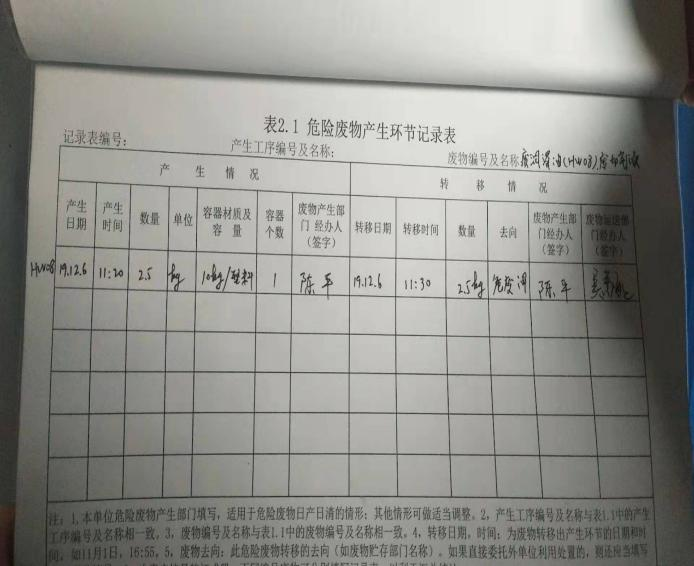 表2.1 危险废物产生环节记录表
记录表编号： 产生工序编号及名称： 废物编号及名称废润滑油(HW08)
产 生 情 况 转 移 情 况
产生日期 产生时间 数量 单位 容器材质及容 量 容器个数 废物产生部门 经办人（签字） 转移日期 转移时间 数量 去向 废物产生部门经办人（签字） 废物运送部门经办人（签字）
HW08 19.12.6 11:20 2.5 kg 10kg/塑料 1 陈平 19.12.6 11:30 2.5kg 危废间 陈平
注：1,本单位危险废物产生部门填写，适用于危险废物日产日清的情形；其他情形可做适当调整。2，产生工序编号及名称与表1.1中的产生
工序编号及名称相一致。3，废物编号及名称与表1.1中的废物编号及名称相一致。4，转移日期，时间：为废物转移出产生环节的日期和时
间，如11月1日，16:55。5，废物去向：此危险废物转移的去向（如废物贮存部门名称）。如果直接委托外单位利用处置的，则还应当填写